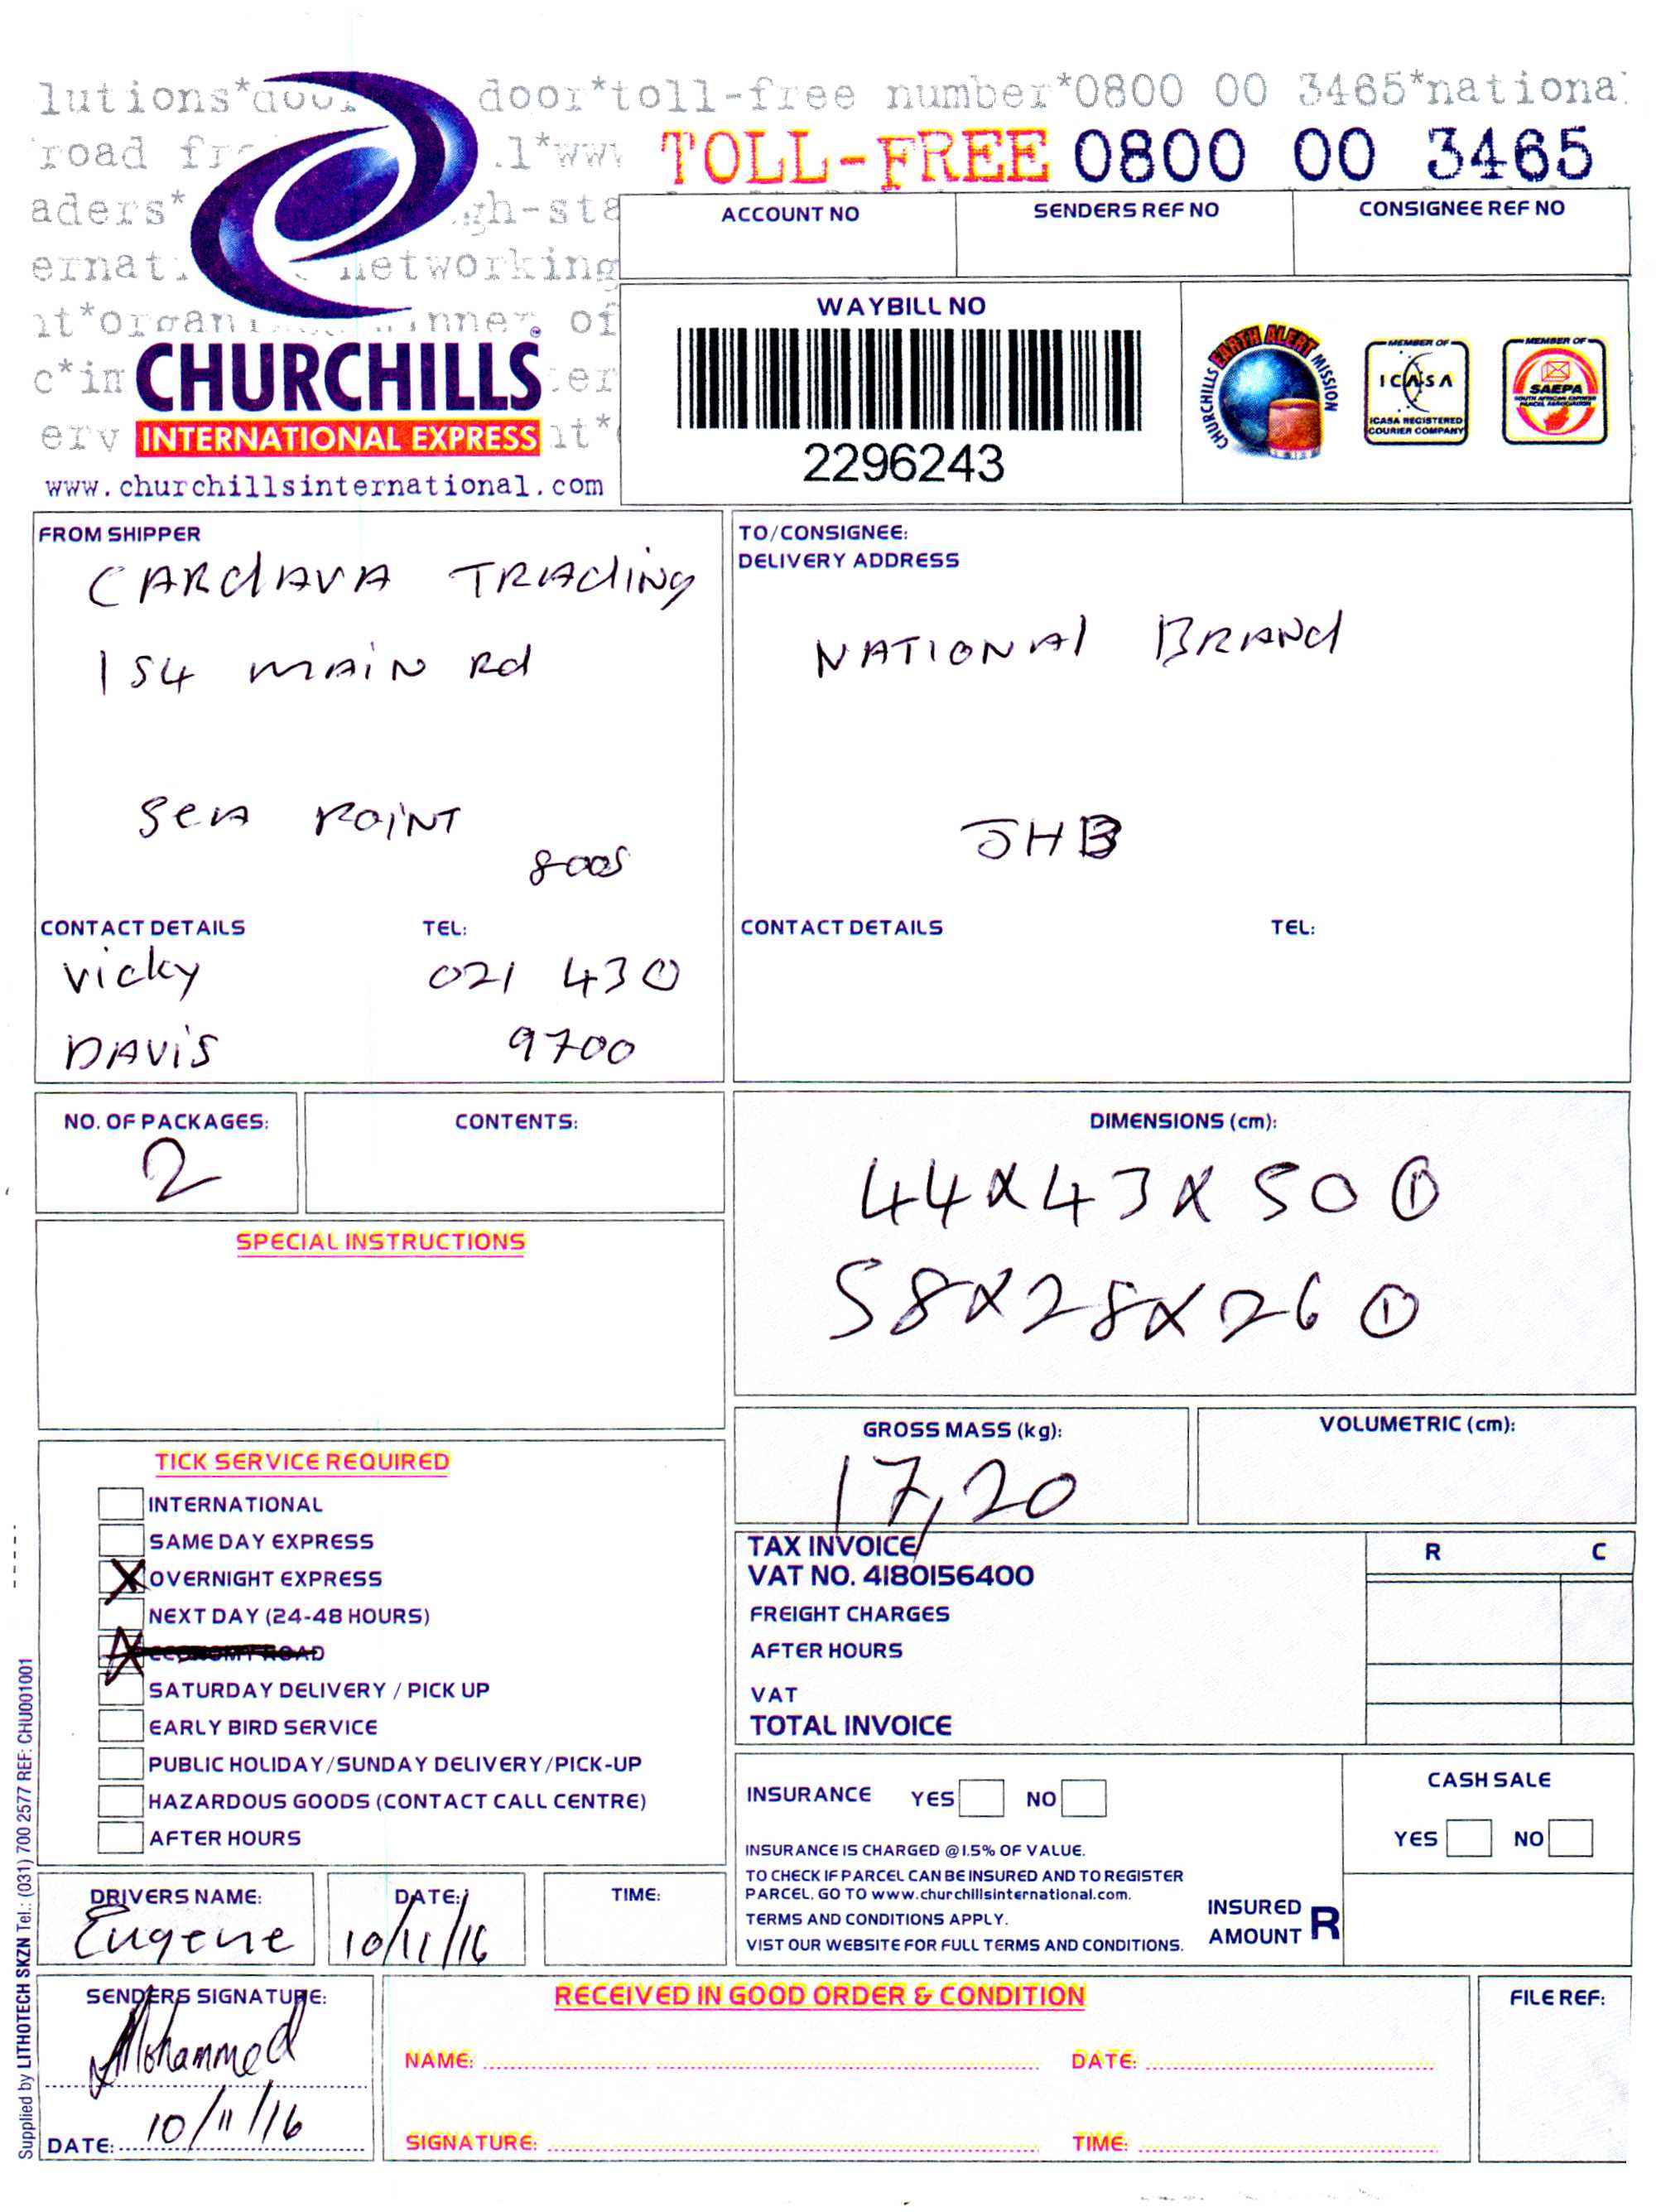 lutions* door*toll-free number*0800 00 3465*nationa
road .l*www
TOLL-FREE 0800 00 3465
aders* gh-sta
ACCOUNT NO
SENDERS REF NO
CONSIGNEE REF NO
ernat networking
nt*organ inner of
c*in er
CHURCHILLS
erv nt*
INTERNATIONAL EXPRESS
www.churchillsinternational.com
WAYBILL NO
2296243
CHURCHILLS EARTH ALERT MISSION
MEMBER OF
ICASA
ICASA REGISTERED
COURIER COMPANY
MEMBER OF
SAEPA
SOUTH AFRICAN EXPRESS
PARCEL ASSOCIATION
FROM SHIPPER
CARdAVA TRAdiNg
154 MAiN Rd
SeA POiNT
8005
CONTACT DETAILS
TEL:
Vicky 021 430
DAViS 9700
TO/CONSIGNEE:
DELIVERY ADDRESS
NATIONAl BRANd
JHB
CONTACT DETAILS
TEL:
NO. OF PACKAGES:
2
CONTENTS:
DIMENSIONS (cm):
44x43x50 ①
58x28x26 ①
SPECIAL INSTRUCTIONS
GROSS MASS (kg):
17,20
VOLUMETRIC (cm):
TICK SERVICE REQUIRED
INTERNATIONAL
SAME DAY EXPRESS
X OVERNIGHT EXPRESS
NEXT DAY (24-48 HOURS)
ECONOMY ROAD
SATURDAY DELIVERY / PICK UP
EARLY BIRD SERVICE
PUBLIC HOLIDAY/SUNDAY DELIVERY/PICK-UP
HAZARDOUS GOODS (CONTACT CALL CENTRE)
AFTER HOURS
TAX INVOICE
R C
VAT NO. 4180156400
FREIGHT CHARGES
AFTER HOURS
VAT
TOTAL INVOICE
INSURANCE YES NO
INSURANCE IS CHARGED @1.5% OF VALUE.
TO CHECK IF PARCEL CAN BE INSURED AND TO REGISTER
PARCEL, GO TO www.churchillsinternational.com.
TERMS AND CONDITIONS APPLY.
VIST OUR WEBSITE FOR FULL TERMS AND CONDITIONS.
INSURED
AMOUNT R
CASH SALE
YES NO
DRIVERS NAME:
Eugene
DATE:
10/11/16
TIME:
SENDERS SIGNATURE:
Mohammed
DATE: 10/11/16
RECEIVED IN GOOD ORDER & CONDITION
NAME:
DATE:
SIGNATURE:
TIME:
FILE REF:
Supplied by LITHOTECH SKZN Tel.: (031) 700 2577 REF: CHU001001